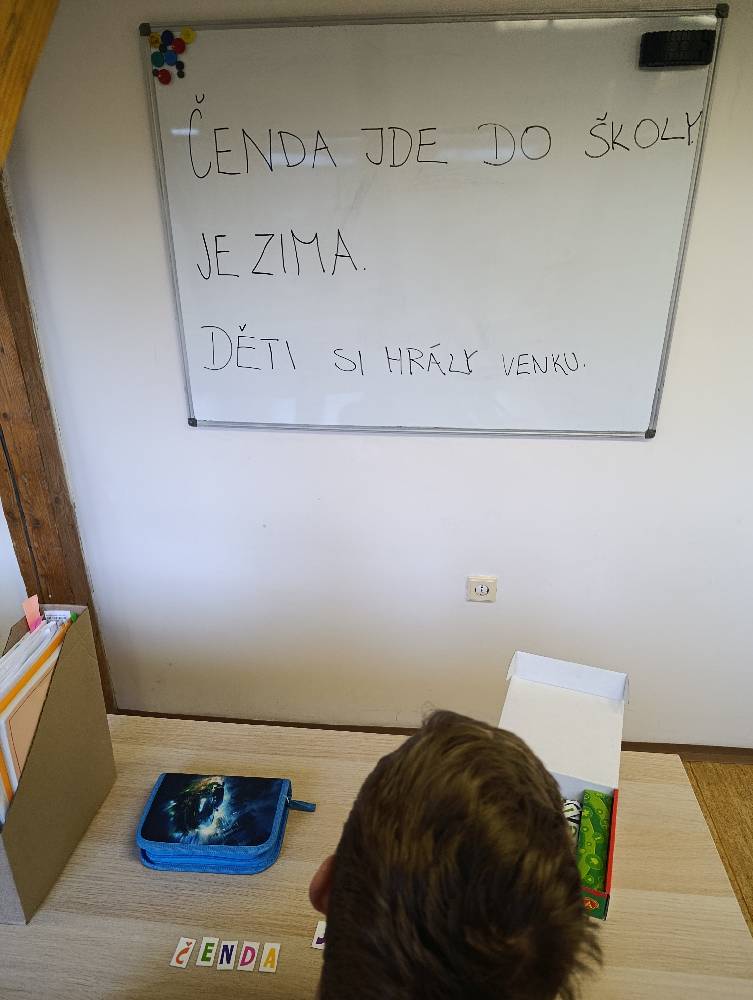 ČENDA JDE DO ŠKOLY.
JE ZIMA.
DĚTI SI HRÁLY VENKU.
ČENDA J